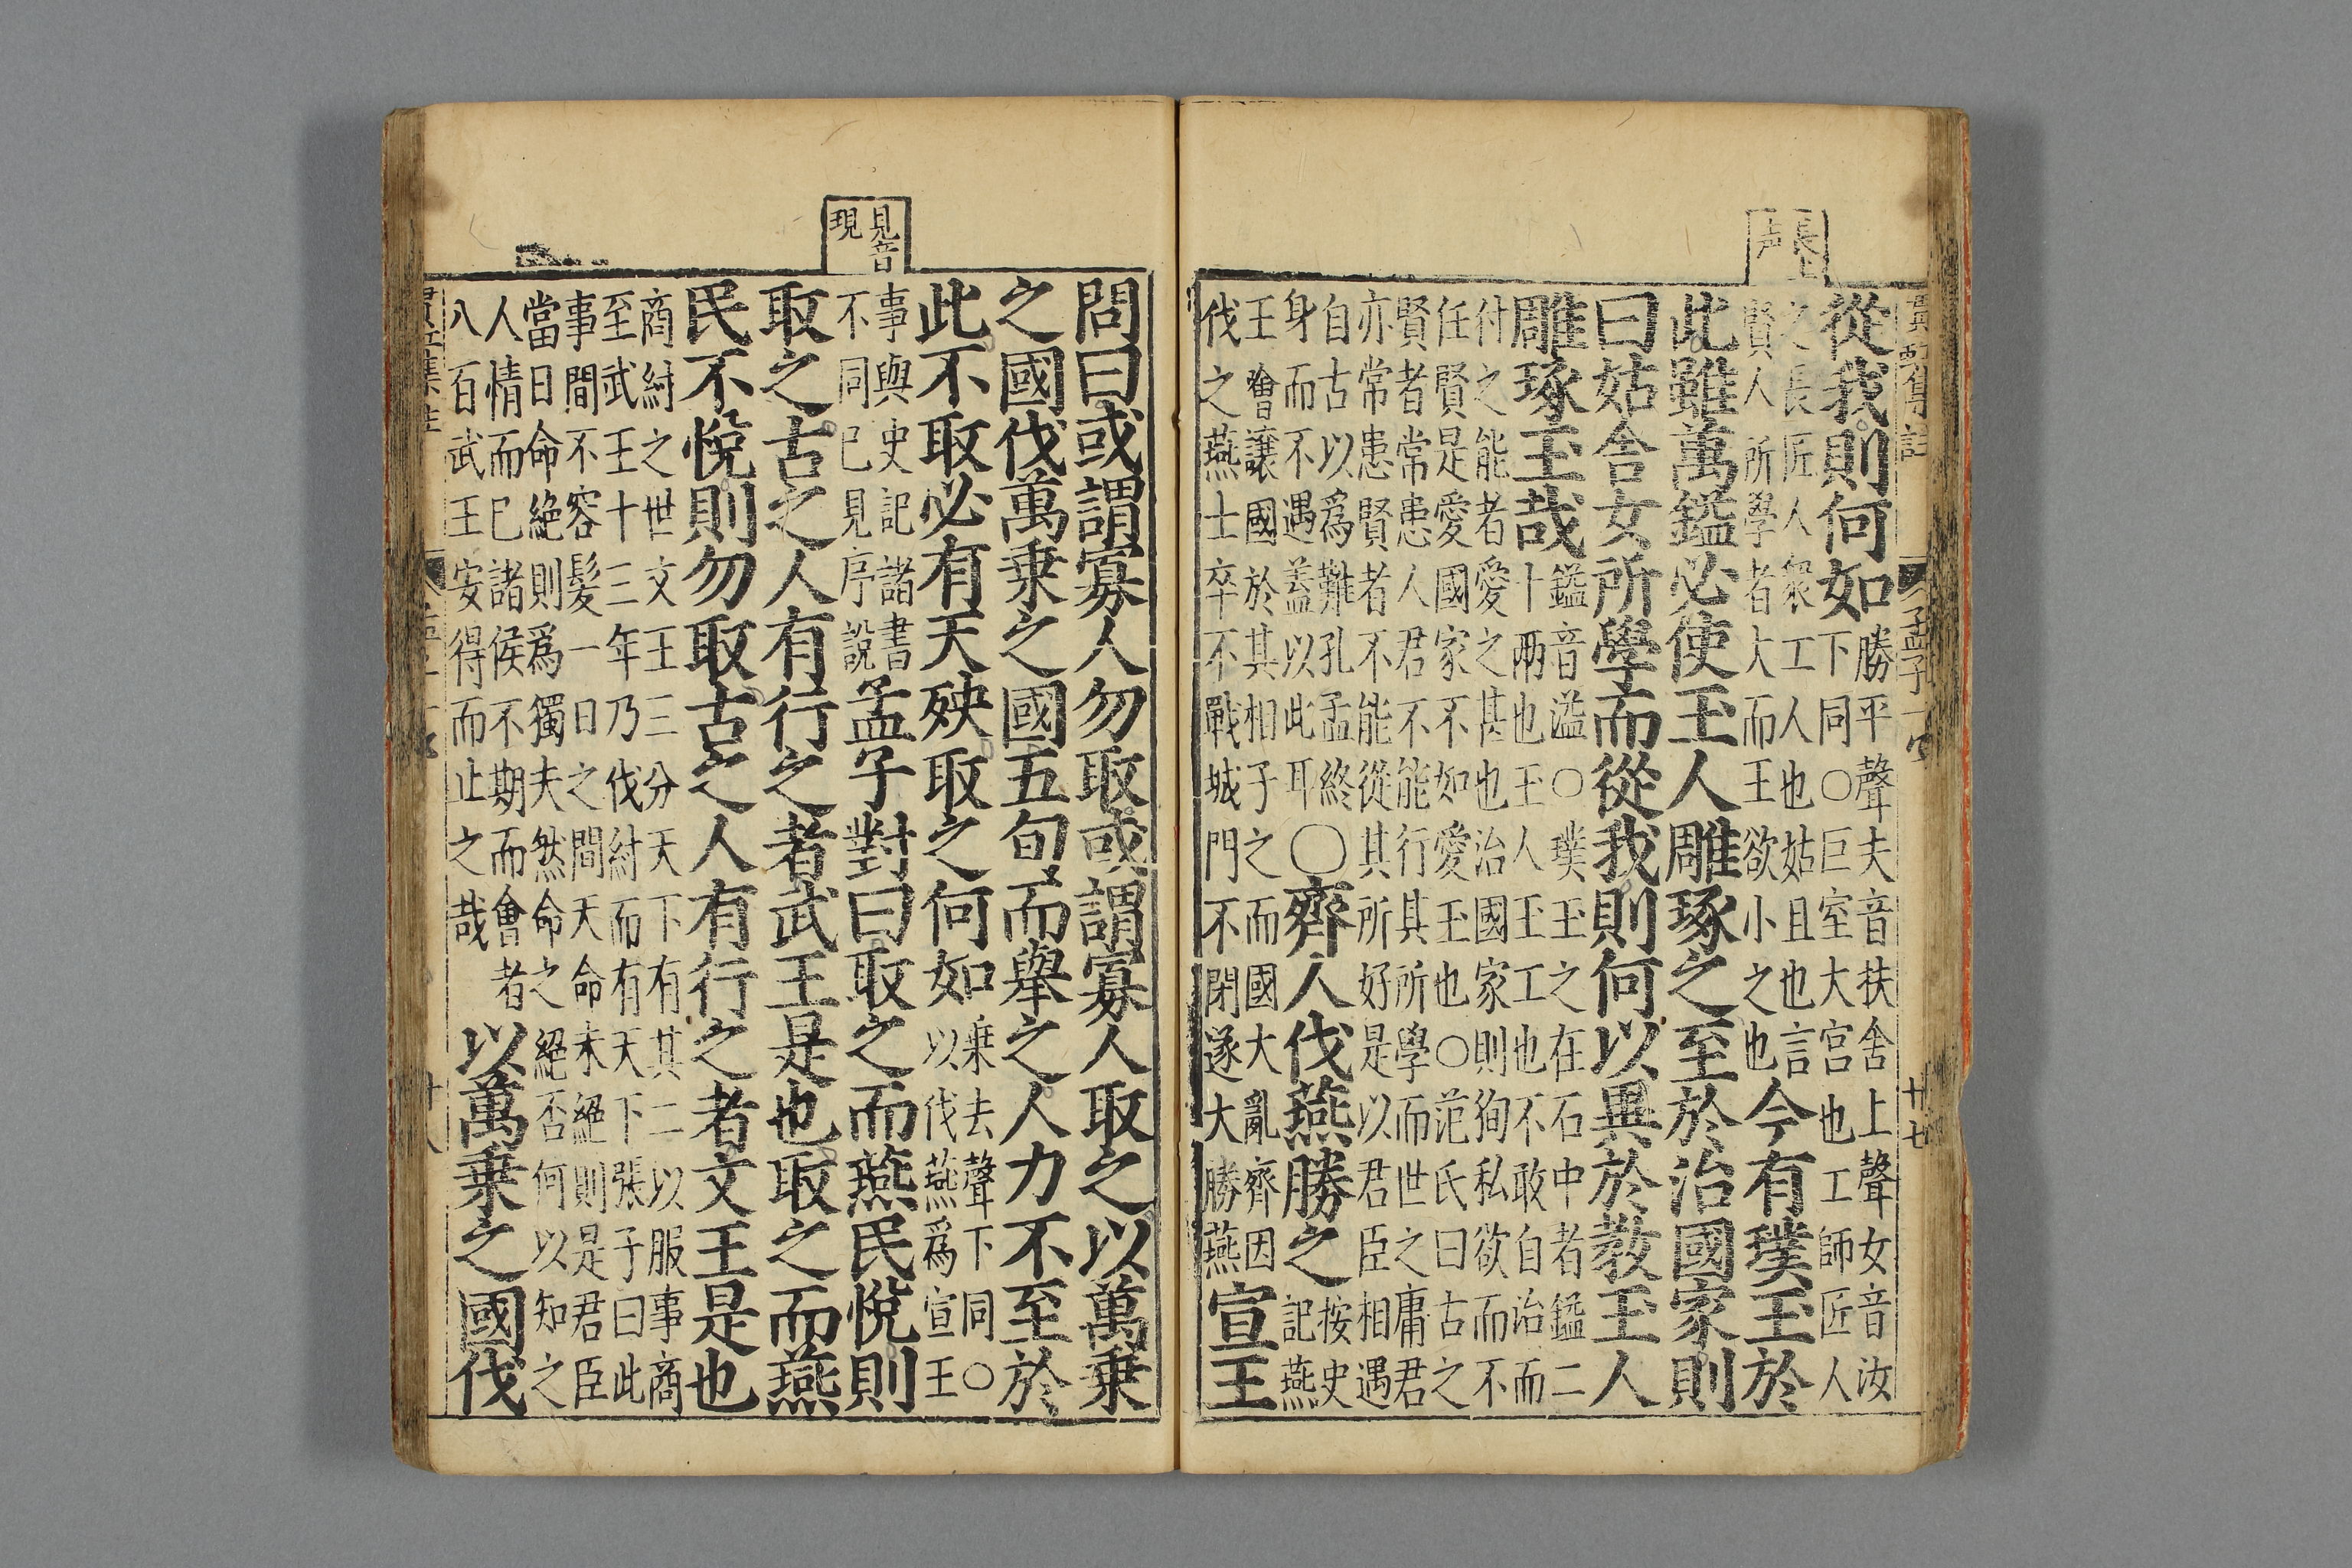 長上声
孟子一
十七
從我則何如
勝平聲夫音扶舍上聲女音汝
下同○巨室大宮也工師匠人
之長匠人衆工人也姑且也言
賢人所學者大而王欲小之也
今有璞玉於
此雖萬鎰必使玉人雕琢之至於治國家則
曰姑舍女所學而從我則何以異於教玉人
雕琢玉哉
鎰音溢○璞玉之在石中者鎰二
十兩也玉人玉工也不敢自治而
付之能者愛之甚也治國家則狥私欲而不
任賢是愛國家不如愛玉也○范氏曰古之
賢者常患人君不能行其所學而世之庸君
亦常患賢者不能從其所好是以君臣相遇
自古以爲難孔孟終
身而不遇蓋以此耳
○齊人伐燕勝之
按史
記燕
王噲讓國於其相子之而國大亂齊因
伐之燕士卒不戰城門不閉遂大勝燕
宣王
見音現
問曰或謂寡人勿取或謂寡人取之以萬乗
之國伐萬乗之國五旬而舉之人力不至於
此不取必有天殃取之何如
乗去聲下同○
以伐燕爲宣王
事與史記諸書
不同已見序說
孟子對曰取之而燕民悅則
取之古之人有行之者武王是也取之而燕
民不悅則勿取古之人有行之者文王是也
商紂之世文王三分天下有其二以服事商
至武王十三年乃伐紂而有天下張子曰此
事間不容髮一日之間天命未絕則是君臣
當日命絕則爲獨夫然命之絕否何以知之
人情而已諸侯不期而會者
八百武王安得而止之哉
以萬乗之國伐